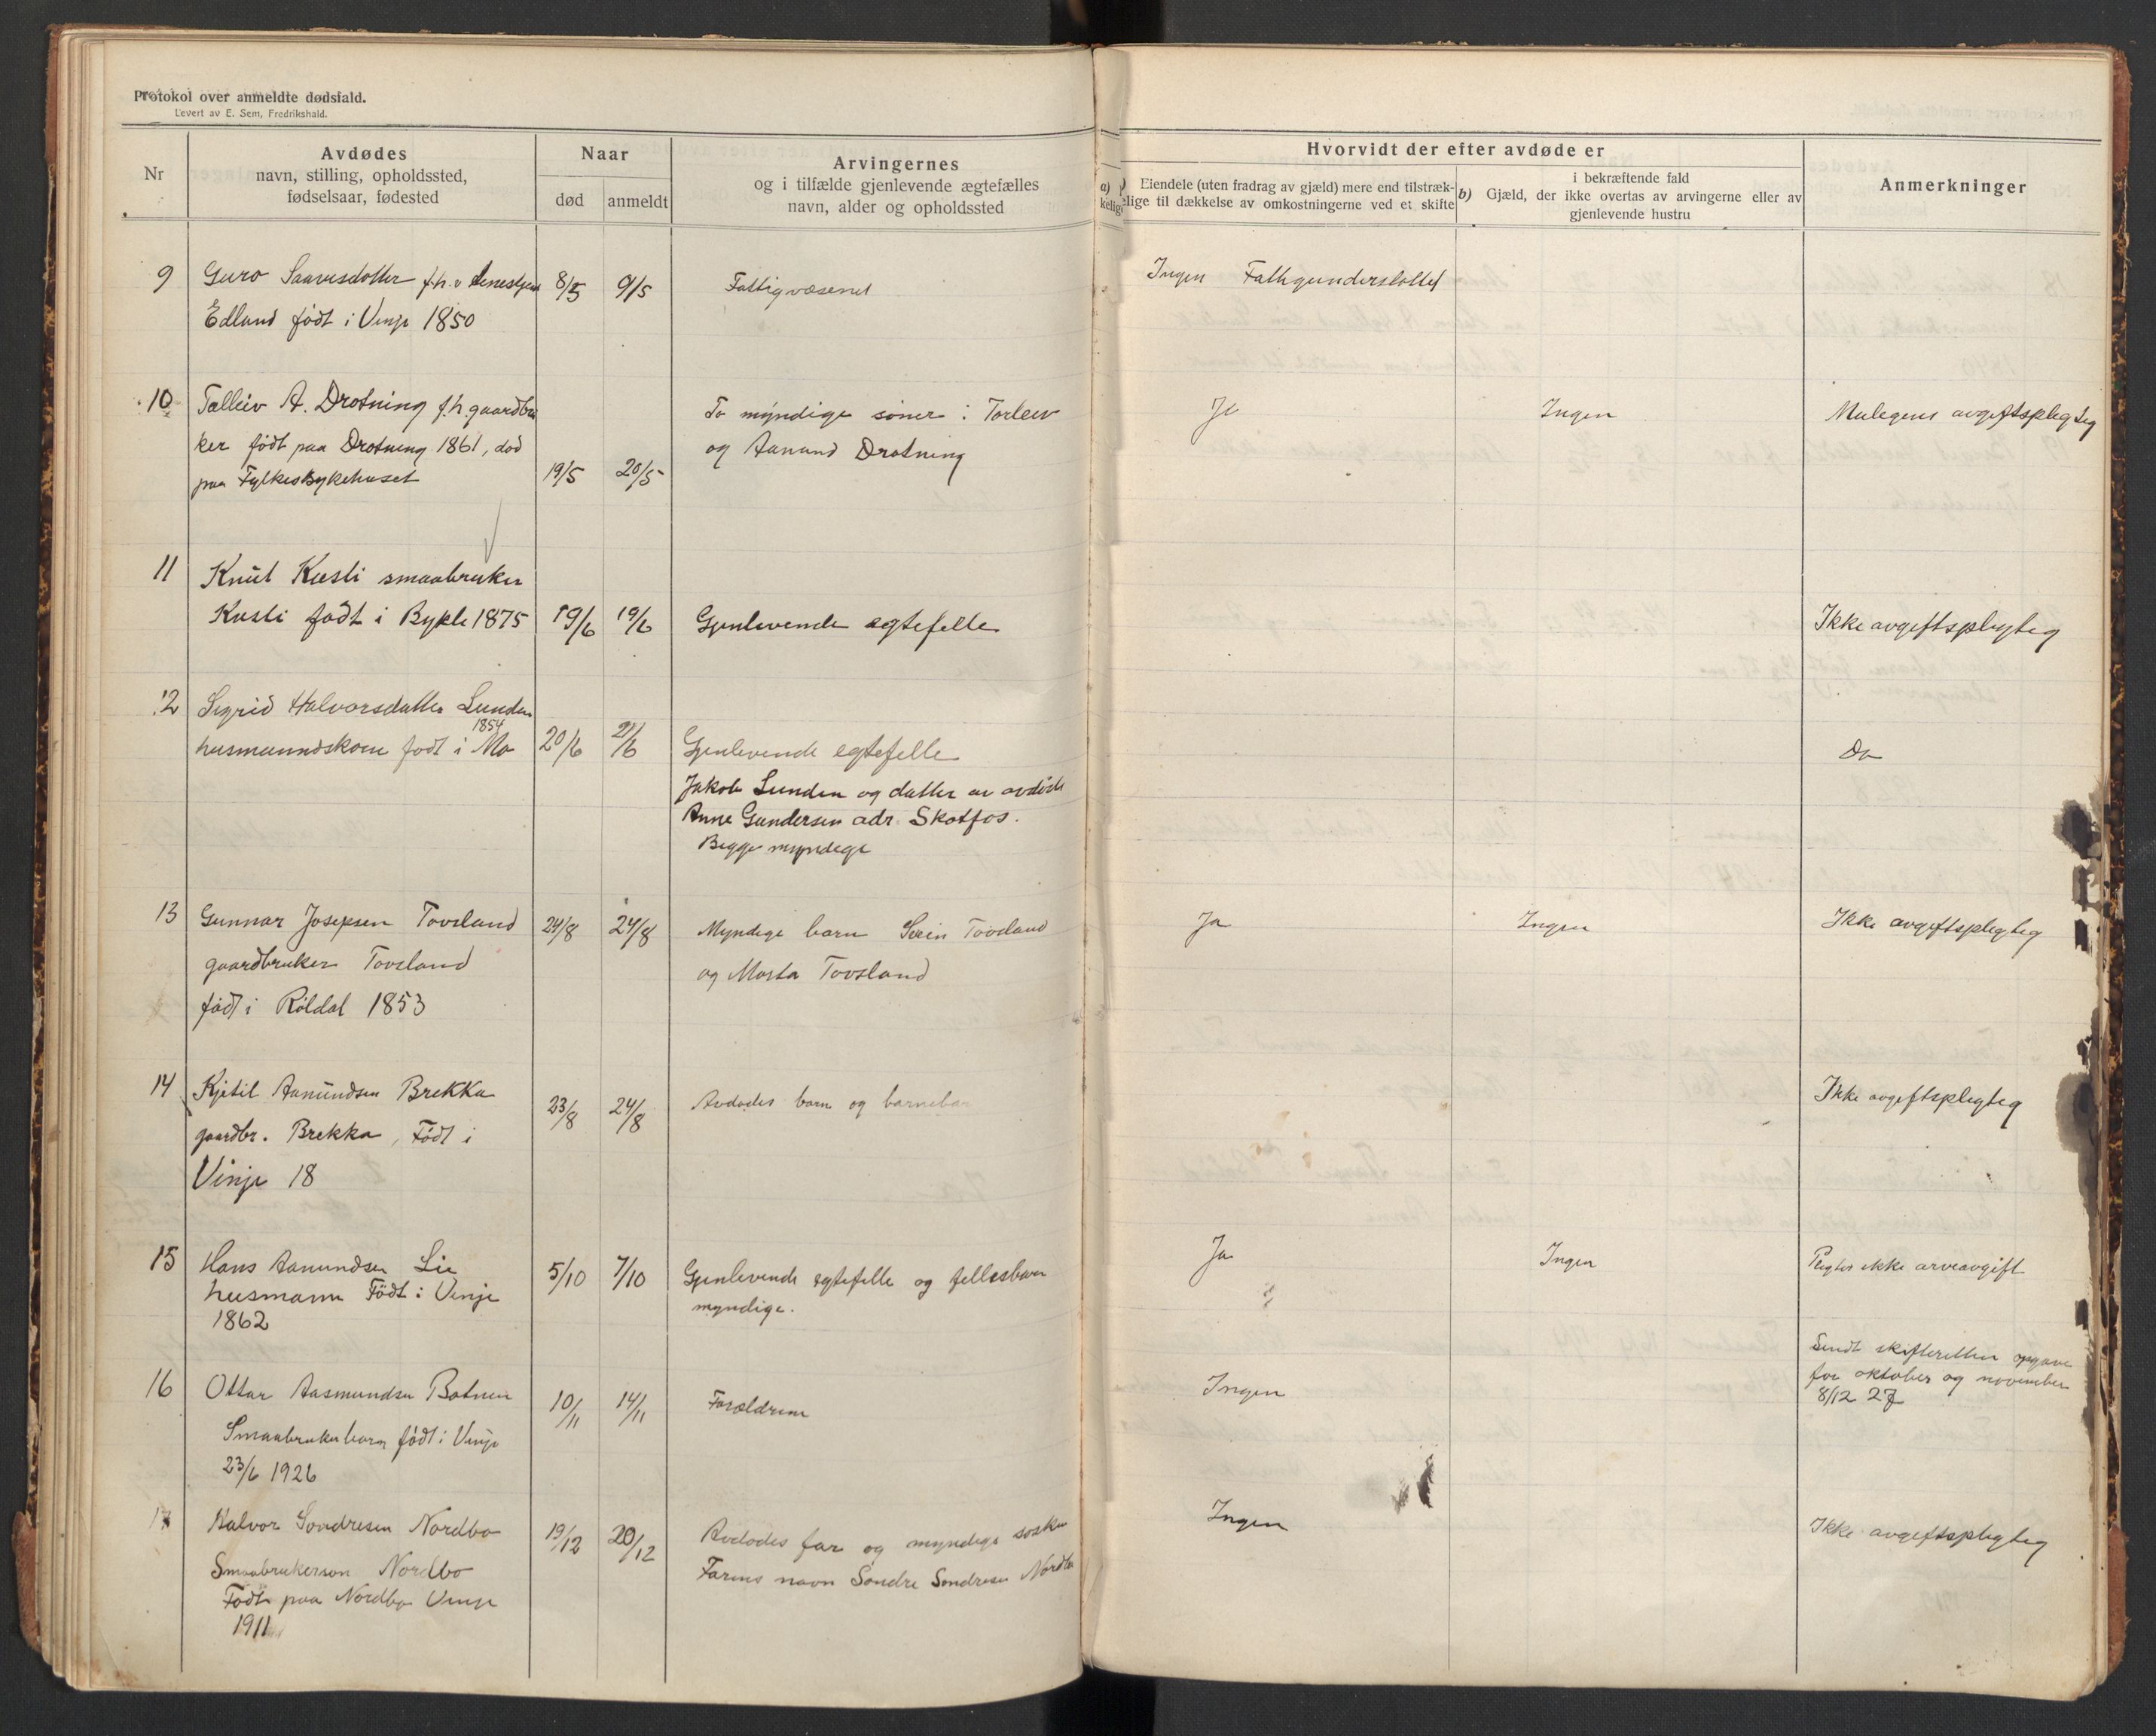 Protokol over anmeldte dødsfald.
Levert av E. Sem, Fredrikshald.
Nr
Avdødes
navn, stilling, opholdssted,
fødselsaar, fødested
Naar
død
anmeldt
Arvingernes
og i tilfælde gjenlevende ægtefælles
navn, alder og opholdssted
Hvorvidt der efter avdøde er
a) Eiendele (uten fradrag av gjæld) mere end tilstræk-
kelige til dækkelse av omkostningerne ved et skifte
i bekræftende fald
b) Gjæld, der ikke overtas av arvingerne eller av
gjenlevende hustru
Anmerkninger
9 Guro f.h.v 8/5 9/5 Fattigvæsenet Ingen
Edland født i Vinje 1850
10 Talleiv A. Drotning f.h. gaardbru To myndige søner : Torleiv Ja Ingen Muligens avgiftspligtig
ker født paa Drotning 1861, død og Aanund Drotning
paa Fylkessykehuset 19/5 20/5
11 Knut Kusli smaabruker
Kusli født i Bykle 1875 19/6 19/6 Gjenlevende egtefelle Ikke avgiftspligtig
12 Sigrid Halvorsdatter Lunden
1854
husmannskone født i Mo 20/6 21/6 Gjenlevende egtefelle Do
Jakob Lunden og datter av avdøde
Anne Gundersen adr. Skotfos.
Begge myndige
13 Gunnar Josepsen Tovsland 24/8 24/8 Myndige barn Svein Tovsland Ja Ingen Ikke avgiftspligtig
gaardbruker Tovsland og Marta Tovsland
født i Röldal 1853
14 Kjetil Aanundsen Brekka 23/8 24/8 Avdødes barn og barnebarn Ikke avgiftspligtig
gaardbr. Brekka, Født i
Vinje 18
15 Hans Aanundsen Lie 5/10 7/10 Gjenlevende egtefelle og fellesbarn Ja Ingen Pligter ikke arveavgift
husmann Født i Vinje myndige.
1862
Sendt skifteretten opgave
for oktober og november
8/12 27
16 Ottar Aasmundsen Botnen 10/11 14/11 Forældrene Ingen
Smaabrukerbarn født i Vinje
23/6 1926
17 Halvor Sondresen Nordbø 19/12 20/12 Avdødes far og myndige søsken Ingen Ikke avgiftspligtig
Smaabrukersøn Nordbø Farens navn Sondre Sondresen Nordbø
Født paa Nordbø Vinje
1911